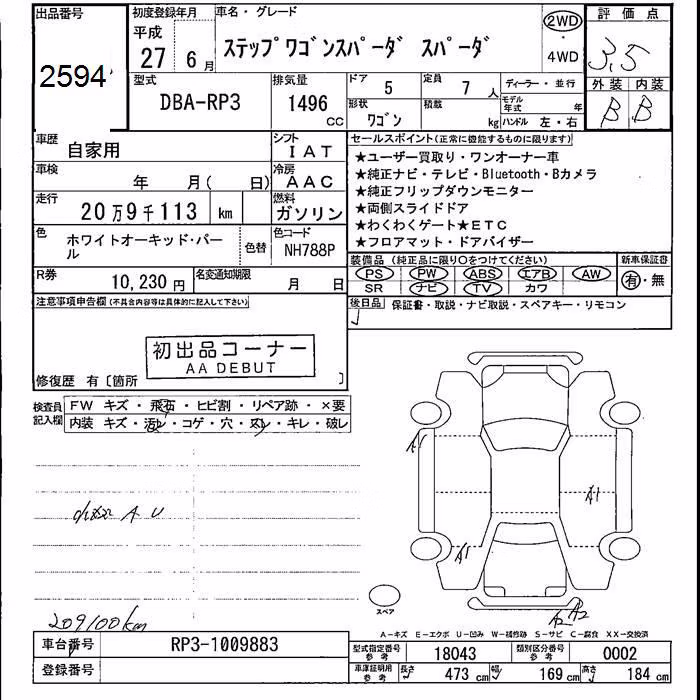 出品番号
2594
初度登録年月
平成
27年 6月
車名・グレード
ステップワゴンスパーダ スパーダ
2WD
・
4WD
評価点
3,5
型式
DBA-RP3
排気量
1496 CC
ドア 5
定員 7人
形状 ワゴン
積載 kg
ディーラー・並行
モデル年式 年
ハンドル 左・右
外装 内装
B B
車歴 自家用
シフト IAT
車検 年 月( 日)
冷房 AAC
走行 20万9千113 km
燃料 ガソリン
色 ホワイトオーキッド・パール
色替
色コード NH788P
R券 10,230円
名変通知期限 月 日
セールスポイント(正常に機能するものに限ります)
★ユーザー買取り・ワンオーナー車
★純正ナビ・テレビ・Bluetooth・Bカメラ
★純正フリップダウンモニター
★両側スライドドア
★わくわくゲート★ETC
★フロアマット・ドアバイザー
装備品(純正品に限り○をつけてください)
新車保証書
PS PW ABS エアB AW
SR ナビ TV カワ
有・無
注意事項申告欄(不具合内容等は具体的に記入して下さい)
後日品 保証書・取説・ナビ取説・スペアキー・リモコン
初出品コーナー
AA DEBUT
修復歴 有〔箇所 〕
検査員記入欄
FW キズ・飛石・ヒビ割・リペア跡・×要
内装 キズ・汚レ・コゲ・穴・スレ・キレ・破レ
A1
A1
A1
A U
209100km
スペア
A2 A2
A-キズ E-エクボ U-凹み W-補修跡 S-サビ C-腐食 XX-交換済
車台番号 RP3-1009883
登録番号
型式指定番号 参考 18043
類別区分番号 参考 0002
車庫証明用 参考 長さ 473 cm 幅 169 cm 高さ 184 cm